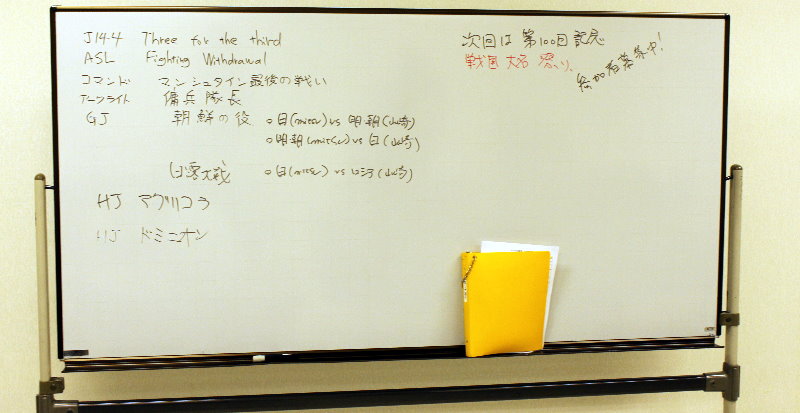 J14-4 Three for the third
ASL Fighting Withdrawal
コマンド マンシュタイン最後の戦い
アークライト 傭兵隊長
GJ 朝鮮の役 ○日(mitsu) vs 明・朝(山崎)
○明・朝(mitsu) vs 日(山崎)
日露大戦 ○日(mitsu) vs ロシア(山崎)
HJ アグリコラ
HJ ドミニオン
次回は 第100回 記念
戦国大名 祭り、
参加者募集中!